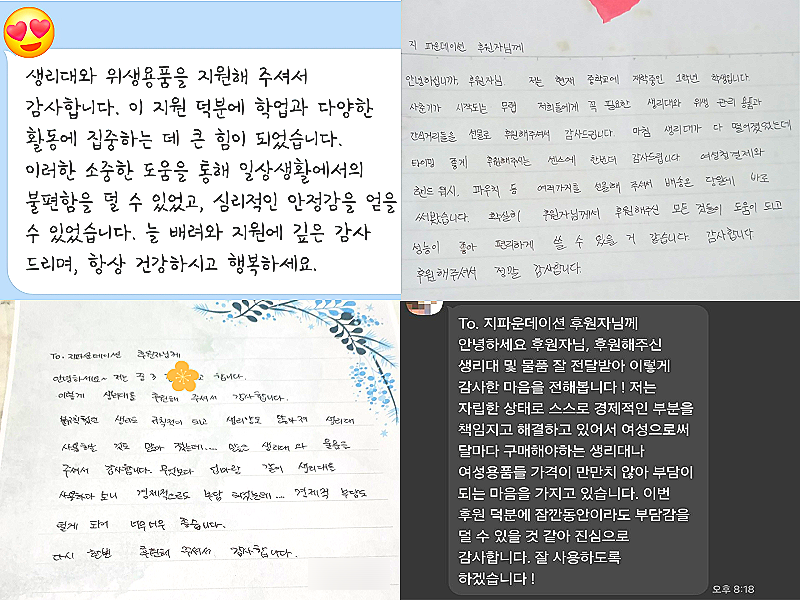 생리대와 위생용품을 지원해 주셔서
감사합니다. 이 지원 덕분에 학업과 다양한
활동에 집중하는 데 큰 힘이 되었습니다.
이러한 소중한 도움을 통해 일상생활에서의
불편함을 덜 수 있었고, 심리적인 안정감을 얻을
수 있었습니다. 늘 배려와 지원에 깊은 감사
드리며, 항상 건강하시고 행복하세요.
지 파운데이션 후원자님께
안녕하십니까, 후원자님. 저는 현재 중학교에 재학중인 1학년 학생입니다.
사춘기가 시작되는 무렵 저희들에게 꼭 필요한 생리대와 위생 관리 용품과
간식거리들을 선물로 후원해주셔서 감사드립니다. 마침 생리대가 다 떨어졌었는데
타이밍 좋게 후원해주시는 센스에 한번더 감사드립니다. 여성청결제와
핸드 워시, 파우치 등 여러가지를 선물해 주셔서 배송온 당일에 바로
써봤습니다. 확실히 후원자님께서 후원해주신 모든 것들이 도움이 되고
성능이 좋아 편리하게 쓸 수 있을 거 같습니다. 감사합니다
후원해주셔서 정말 감사합니다.
To. 지파운데이션 후원자님께
안녕하세요~ 저는 중3 고 합니다.
이렇게 생리대를 후원해 주셔서 감사합니다.
생리도 규칙적이 되고 생리양도 많아져 생리대
사용하는 것도 많아 졌는데.... 생리대와 물품을
주셔서 감사합니다. 무엇보다 언니랑 같이 생리대를
사용하다 보니 경제적으로도 부담 되었는데.... 경제적 부담도
덜게 되어 너무너무 좋습니다.
다시 한번 후원해 주셔서 감사합니다.
To. 지파운데이션 후원자님께
안녕하세요 후원자님, 후원해주신
생리대 및 물품 잘 전달받아 이렇게
감사한 마음을 전해봅니다 ! 저는
자립한 상태로 스스로 경제적인 부분을
책임지고 해결하고 있어서 여성으로써
달마다 구매해야하는 생리대나
여성용품들 가격이 만만치 않아 부담이
되는 마음을 가지고 있습니다. 이번
후원 덕분에 잠깐동안이라도 부담감을
덜 수 있을 것 같아 진심으로
감사합니다. 잘 사용하도록
하겠습니다 !
오후 8:18